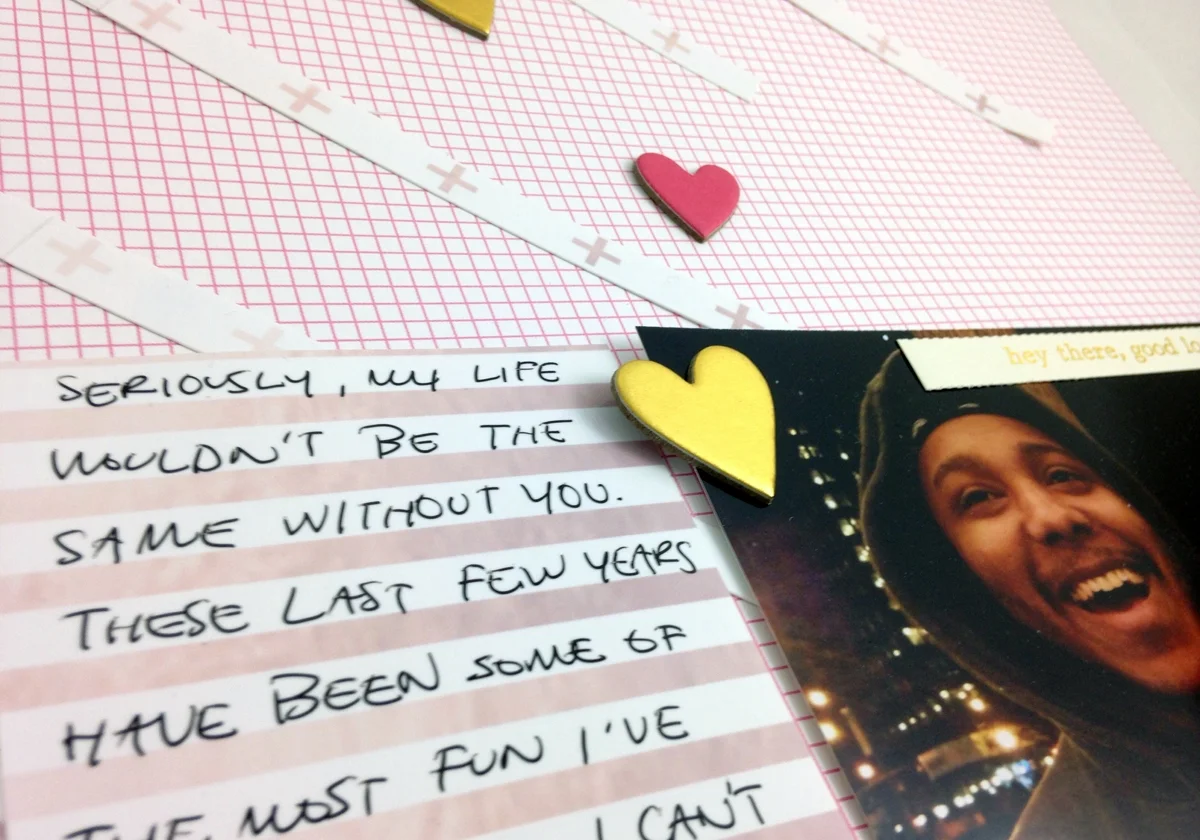 SERIOUSLY, MY LIFE
WOULDN'T BE THE
SAME WITHOUT YOU.
THESE LAST FEW YEARS
HAVE BEEN SOME OF
THE MOST FUN I'VE
I CAN'T
hey there, good lo